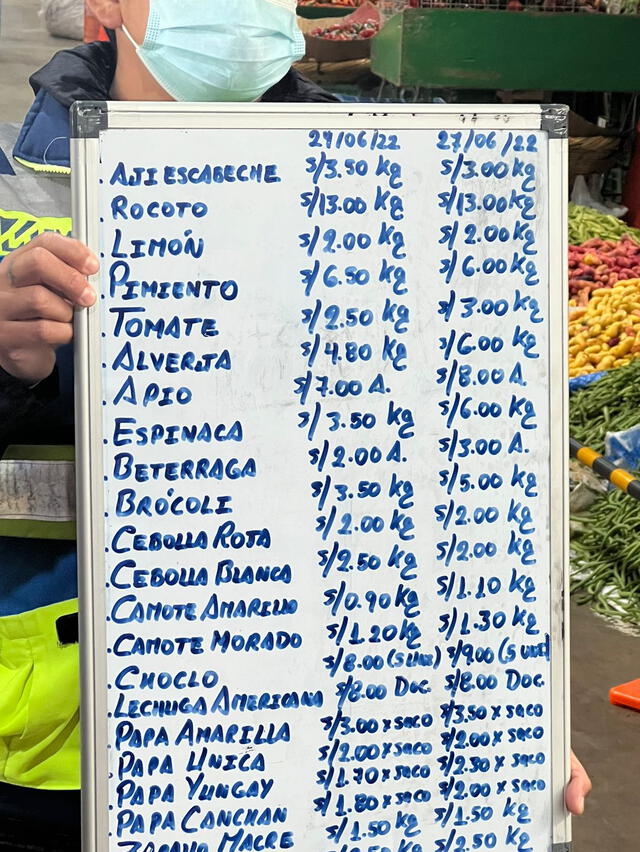 24/06/22 27/06/22
. AJI ESCABECHE S/3.50 Kg S/3.00 Kg
. ROCOTO S/13.00 Kg S/13.00 Kg
. LIMÓN S/2.00 Kg S/2.00 Kg
. PIMIENTO S/6.50 Kg S/6.00 Kg
. TOMATE S/2.50 Kg S/3.00 Kg
. ALVERJTA S/4.80 Kg S/6.00 Kg
. APIO S/7.00 A. S/8.00 A.
. ESPINACA S/3.50 Kg S/6.00 Kg
. BETERRAGA S/2.00 A. S/3.00 A.
. BRÓCOLI S/3.50 Kg S/5.00 Kg
. CEBOLLA ROJA S/2.00 Kg S/2.00 Kg
. CEBOLLA BLANCA S/2.50 Kg S/2.00 Kg
. CAMOTE AMARILLO S/0.90 Kg S/1.10 Kg
. CAMOTE MORADO S/1.20 Kg S/1.30 Kg
. CHOCLO S/8.00 (5 UND) S/9.00 (5 UND)
. LECHUGA AMERICANA S/8.00 Doc. S/8.00 Doc.
. PAPA AMARILLA S/3.00 x saco S/3.50 x saco
. PAPA UNICA S/2.00 x saco S/2.00 x saco
. PAPA YUNGAY S/1.70 x saco S/2.30 x saco
. PAPA CANCHAN S/1.80 x saco S/2.00 x saco
. ZAPALLO MACRE S/1.50 Kg S/1.50 Kg
S/2.50 Kg